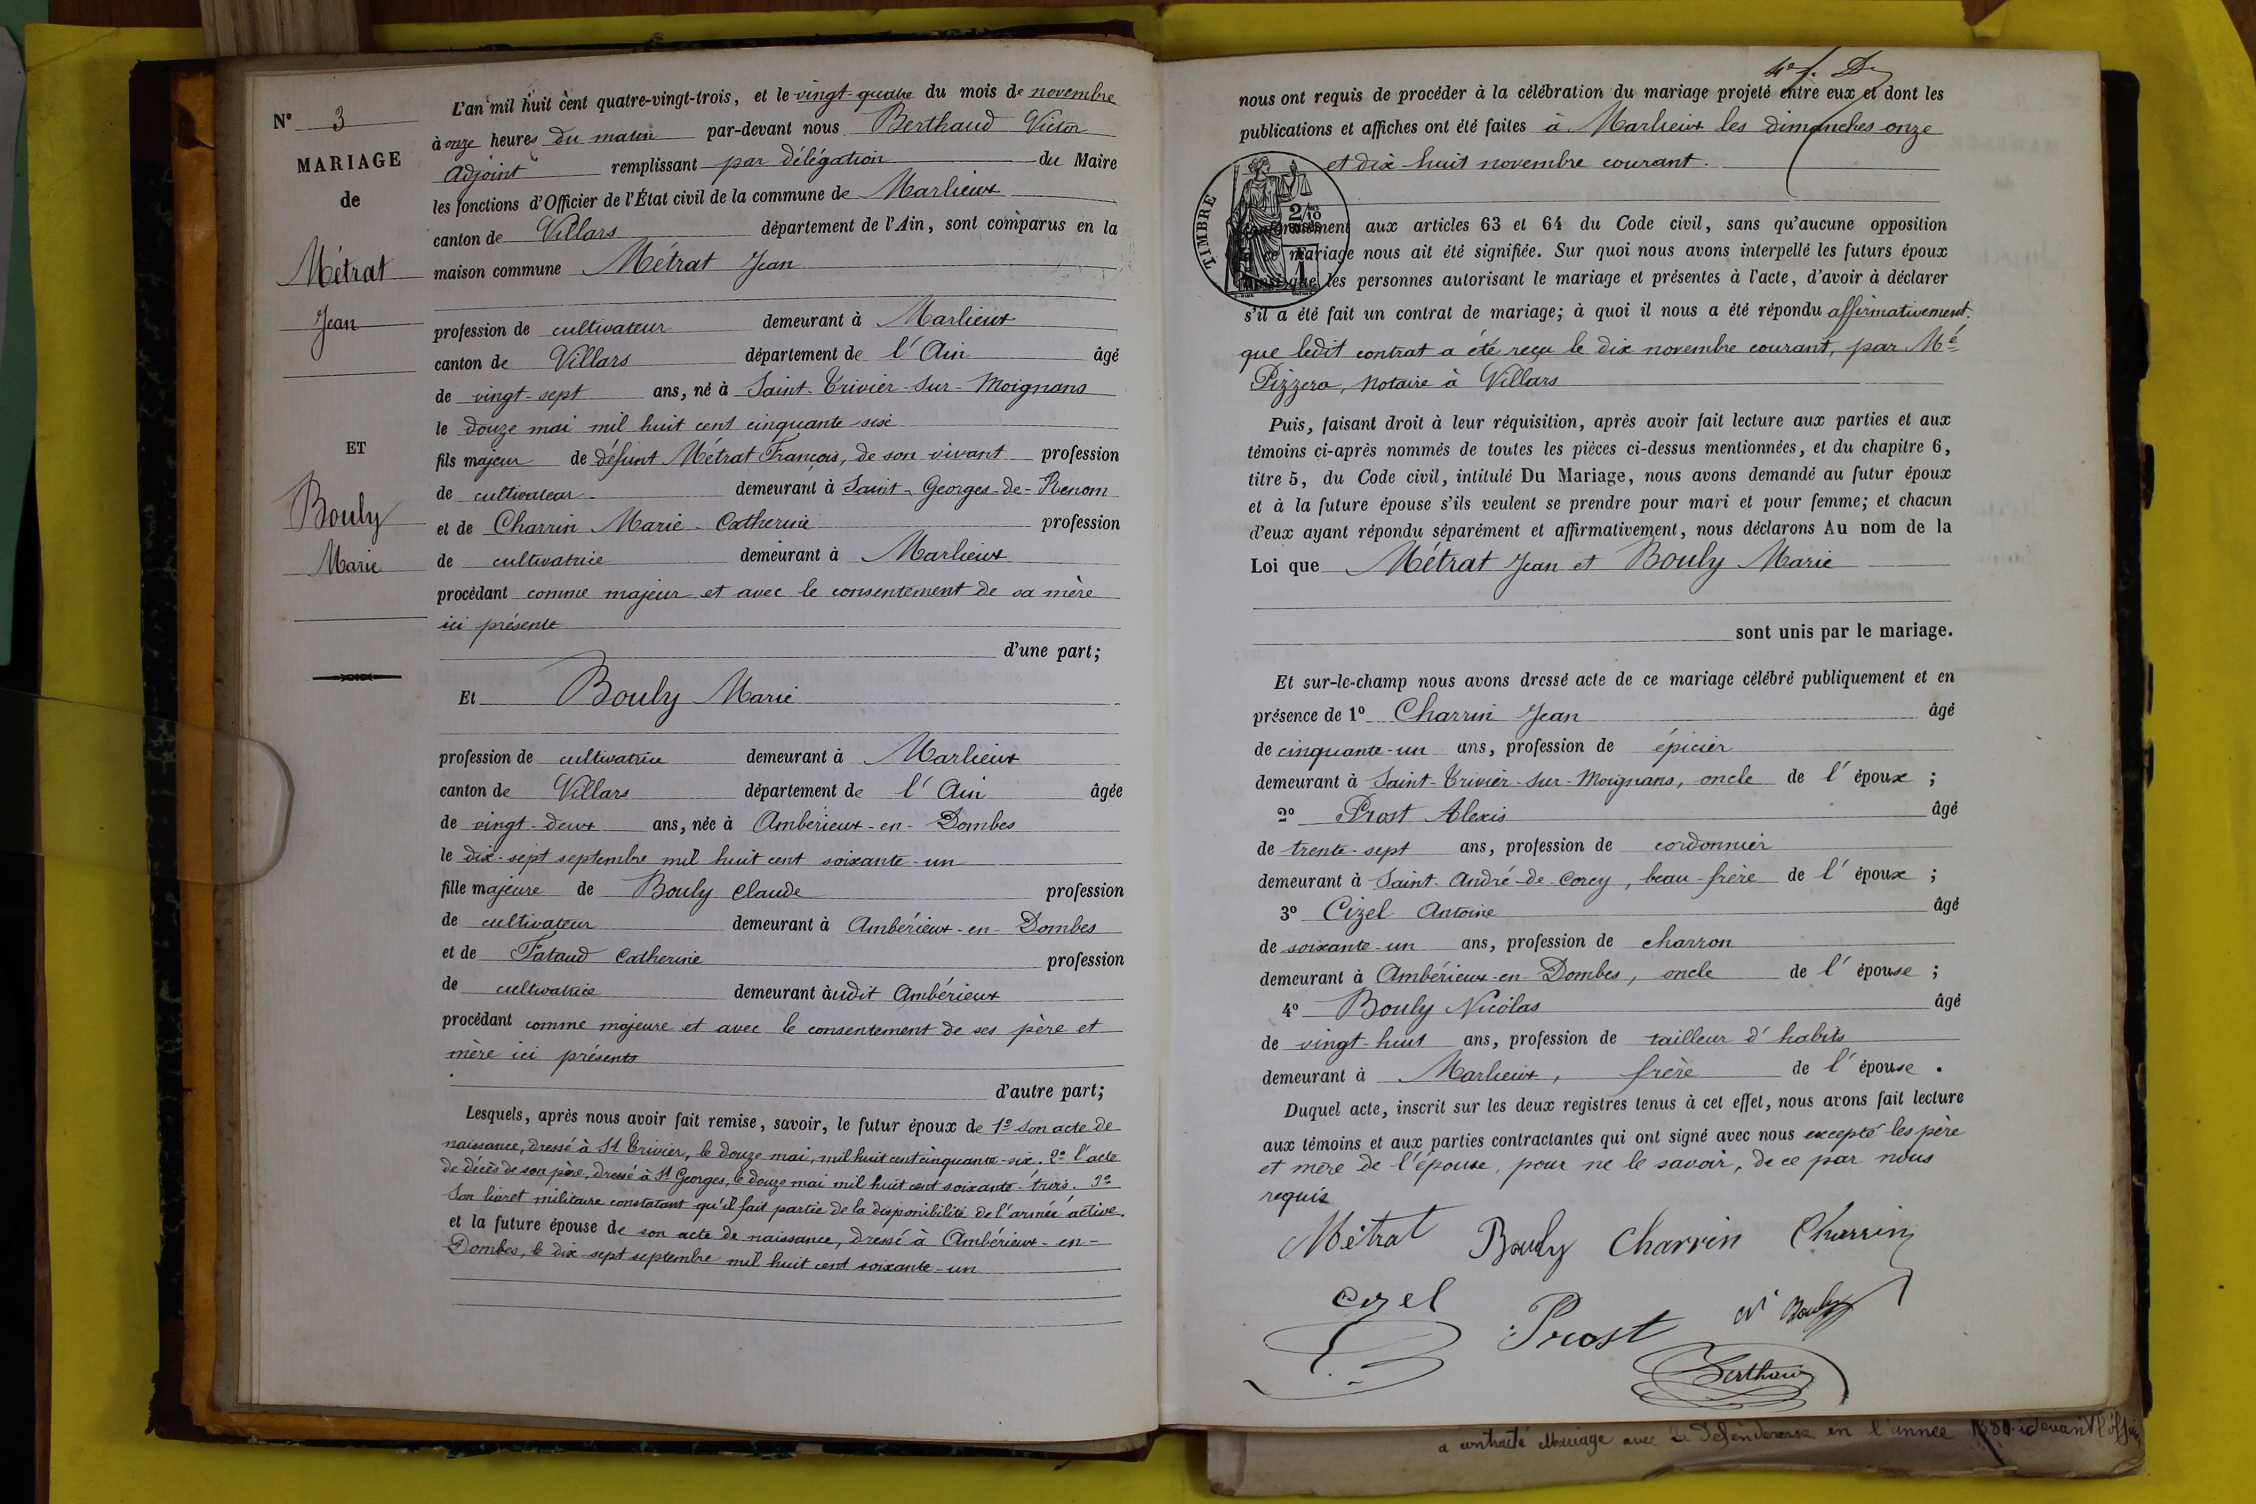 N° 3
MARIAGE
de
Métrat
Jean
ET
Bouly
Marie
L'an mil huit cent quatre-vingt-trois, et le vingt-quatre du mois de novembre
à onze heures du matin par-devant nous Berthaud Victor
adjoint remplissant par délégation du Maire
les fonctions d'Officier de l'État civil de la commune de Marlieux
canton de Villars département de l'Ain, sont comparus en la
maison commune Métrat Jean
profession de cultivateur demeurant à Marlieux
canton de Villars département de l'Ain âgé
de vingt-sept ans, né à Saint-Trivier-sur-Moignans
le douze mai mil huit cent cinquante-six
fils majeur de défunt Métrat François, de son vivant profession
de cultivateur demeurant à Saint-Georges-de-Renom
et de Charrin Marie-Catherine profession
de cultivatrice demeurant à Marlieux
procédant comme majeur et avec le consentement de sa mère
ici présente
d'une part;
Et Bouly Marie
profession de cultivatrice demeurant à Marlieux
canton de Villars département de l'Ain âgée
de vingt-deux ans, née à Ambérieux-en-Dombes
le dix-sept septembre mil huit cent soixante-un
fille majeure de Bouly Claude profession
de cultivateur demeurant à Ambérieux-en-Dombes
et de Fataud Catherine profession
de cultivatrice demeurant àudit Ambérieux
procédant comme majeure et avec le consentement de ses père et
mère ici présents
d'autre part;
Lesquels, après nous avoir fait remise, savoir, le futur époux de 1° son acte de
naissance, dressé à St Trivier, le douze mai, mil huit cent cinquante-six. 2° l'acte
de décès de son père, dressé à St Georges, le douze mai mil huit cent soixante-trois. 3°
Son livret militaire constatant qu'il fait partie de la disponibilité de l'armée active.
et la future épouse de son acte de naissance, dressé à Ambérieux-en-
Dombes, le dix-sept septembre mil huit cent soixante-un
nous ont requis de procéder à la célébration du mariage projeté entre eux et dont les
publications et affiches ont été faites à Marlieux les dimanches onze
et dix-huit novembre courant.
TIMBRE
2/10
1
conformément aux articles 63 et 64 du Code civil, sans qu'aucune opposition
à ce mariage nous ait été signifiée. Sur quoi nous avons interpellé les futurs époux
ainsi que les personnes autorisant le mariage et présentes à l'acte, d'avoir à déclarer
s'il a été fait un contrat de mariage; à quoi il nous a été répondu affirmativement.
que ledit contrat a été reçu le dix novembre courant, par Mé
Pizzera, Notaire à Villars
Puis, faisant droit à leur réquisition, après avoir fait lecture aux parties et aux
témoins ci-après nommés de toutes les pièces ci-dessus mentionnées, et du chapitre 6,
titre 5, du Code civil, intitulé Du Mariage, nous avons demandé au futur époux
et à la future épouse s'ils veulent se prendre pour mari et pour femme; et chacun
d'eux ayant répondu séparément et affirmativement, nous déclarons Au nom de la
Loi que Métrat Jean et Bouly Marie
sont unis par le mariage.
Et sur-le-champ nous avons dressé acte de ce mariage célébré publiquement et en
présence de 1° Charrin Jean âgé
de cinquante-un ans, profession de épicier
demeurant à Saint-Trivier-sur-Moignans, oncle de l'époux ;
2° Prost Alexis âgé
de trente-sept ans, profession de cordonnier
demeurant à Saint-André-de-Corcy, beau-frère de l'époux ;
3° Cizel Antoine âgé
de soixante-un ans, profession de charron
demeurant à Ambérieux-en-Dombes, oncle de l'épouse ;
4° Bouly Nicolas âgé
de vingt-huit ans, profession de tailleur d'habits
demeurant à Marlieux, frère de l'épouse .
Duquel acte, inscrit sur les deux registres tenus à cet effet, nous avons fait lecture
aux témoins et aux parties contractantes qui ont signé avec nous excepté les père
et mère de l'épouse, pour ne le savoir, de ce par nous
requis
Métrat Bouly Charrin Charrin
Cizel Prost N Bouly
Berthaud
a contracté Mariage avec la Défenderesse en l'année